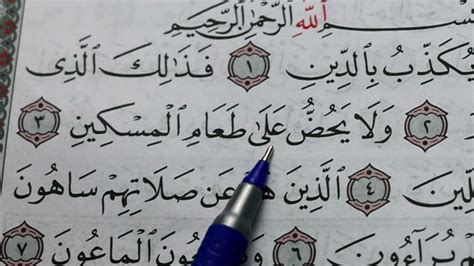 ـسْمِ ٱللَّهِ ٱلرَّحْمَٰنِ ٱلرَّحِيمِ
يُكَذِّبُ بِٱلدِّينِ ١ فَذَٰلِكَ ٱلَّذِى
٢ وَلَا يَحُضُّ عَلَىٰ طَعَامِ ٱلْمِسْكِينِ ٣
ـلِّينَ ٤ ٱلَّذِينَ عَن صَلَاتِهِمْ سَاهُونَ
يُرَآءُونَ ٦ ٱلْمَاعُونَ ٧